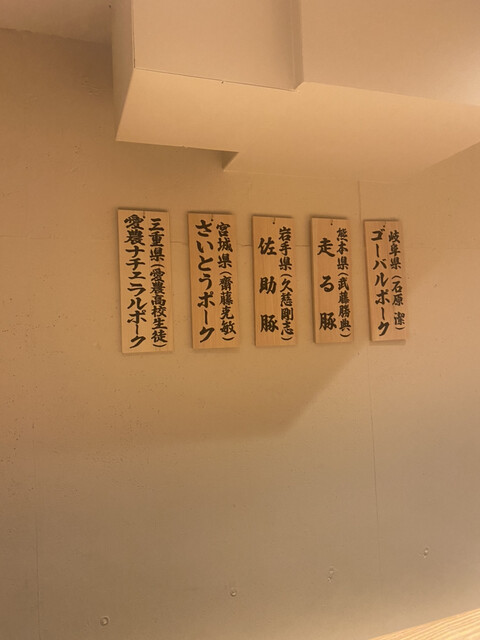 岐阜県(石原 潔)
ゴーバルポーク
熊本県(武藤勝典)
走る豚
岩手県(久慈剛志)
佐助豚
宮城県(齋藤克敏)
さいとうポーク
三重県(愛農高校生徒)
愛農ナチュラルポーク